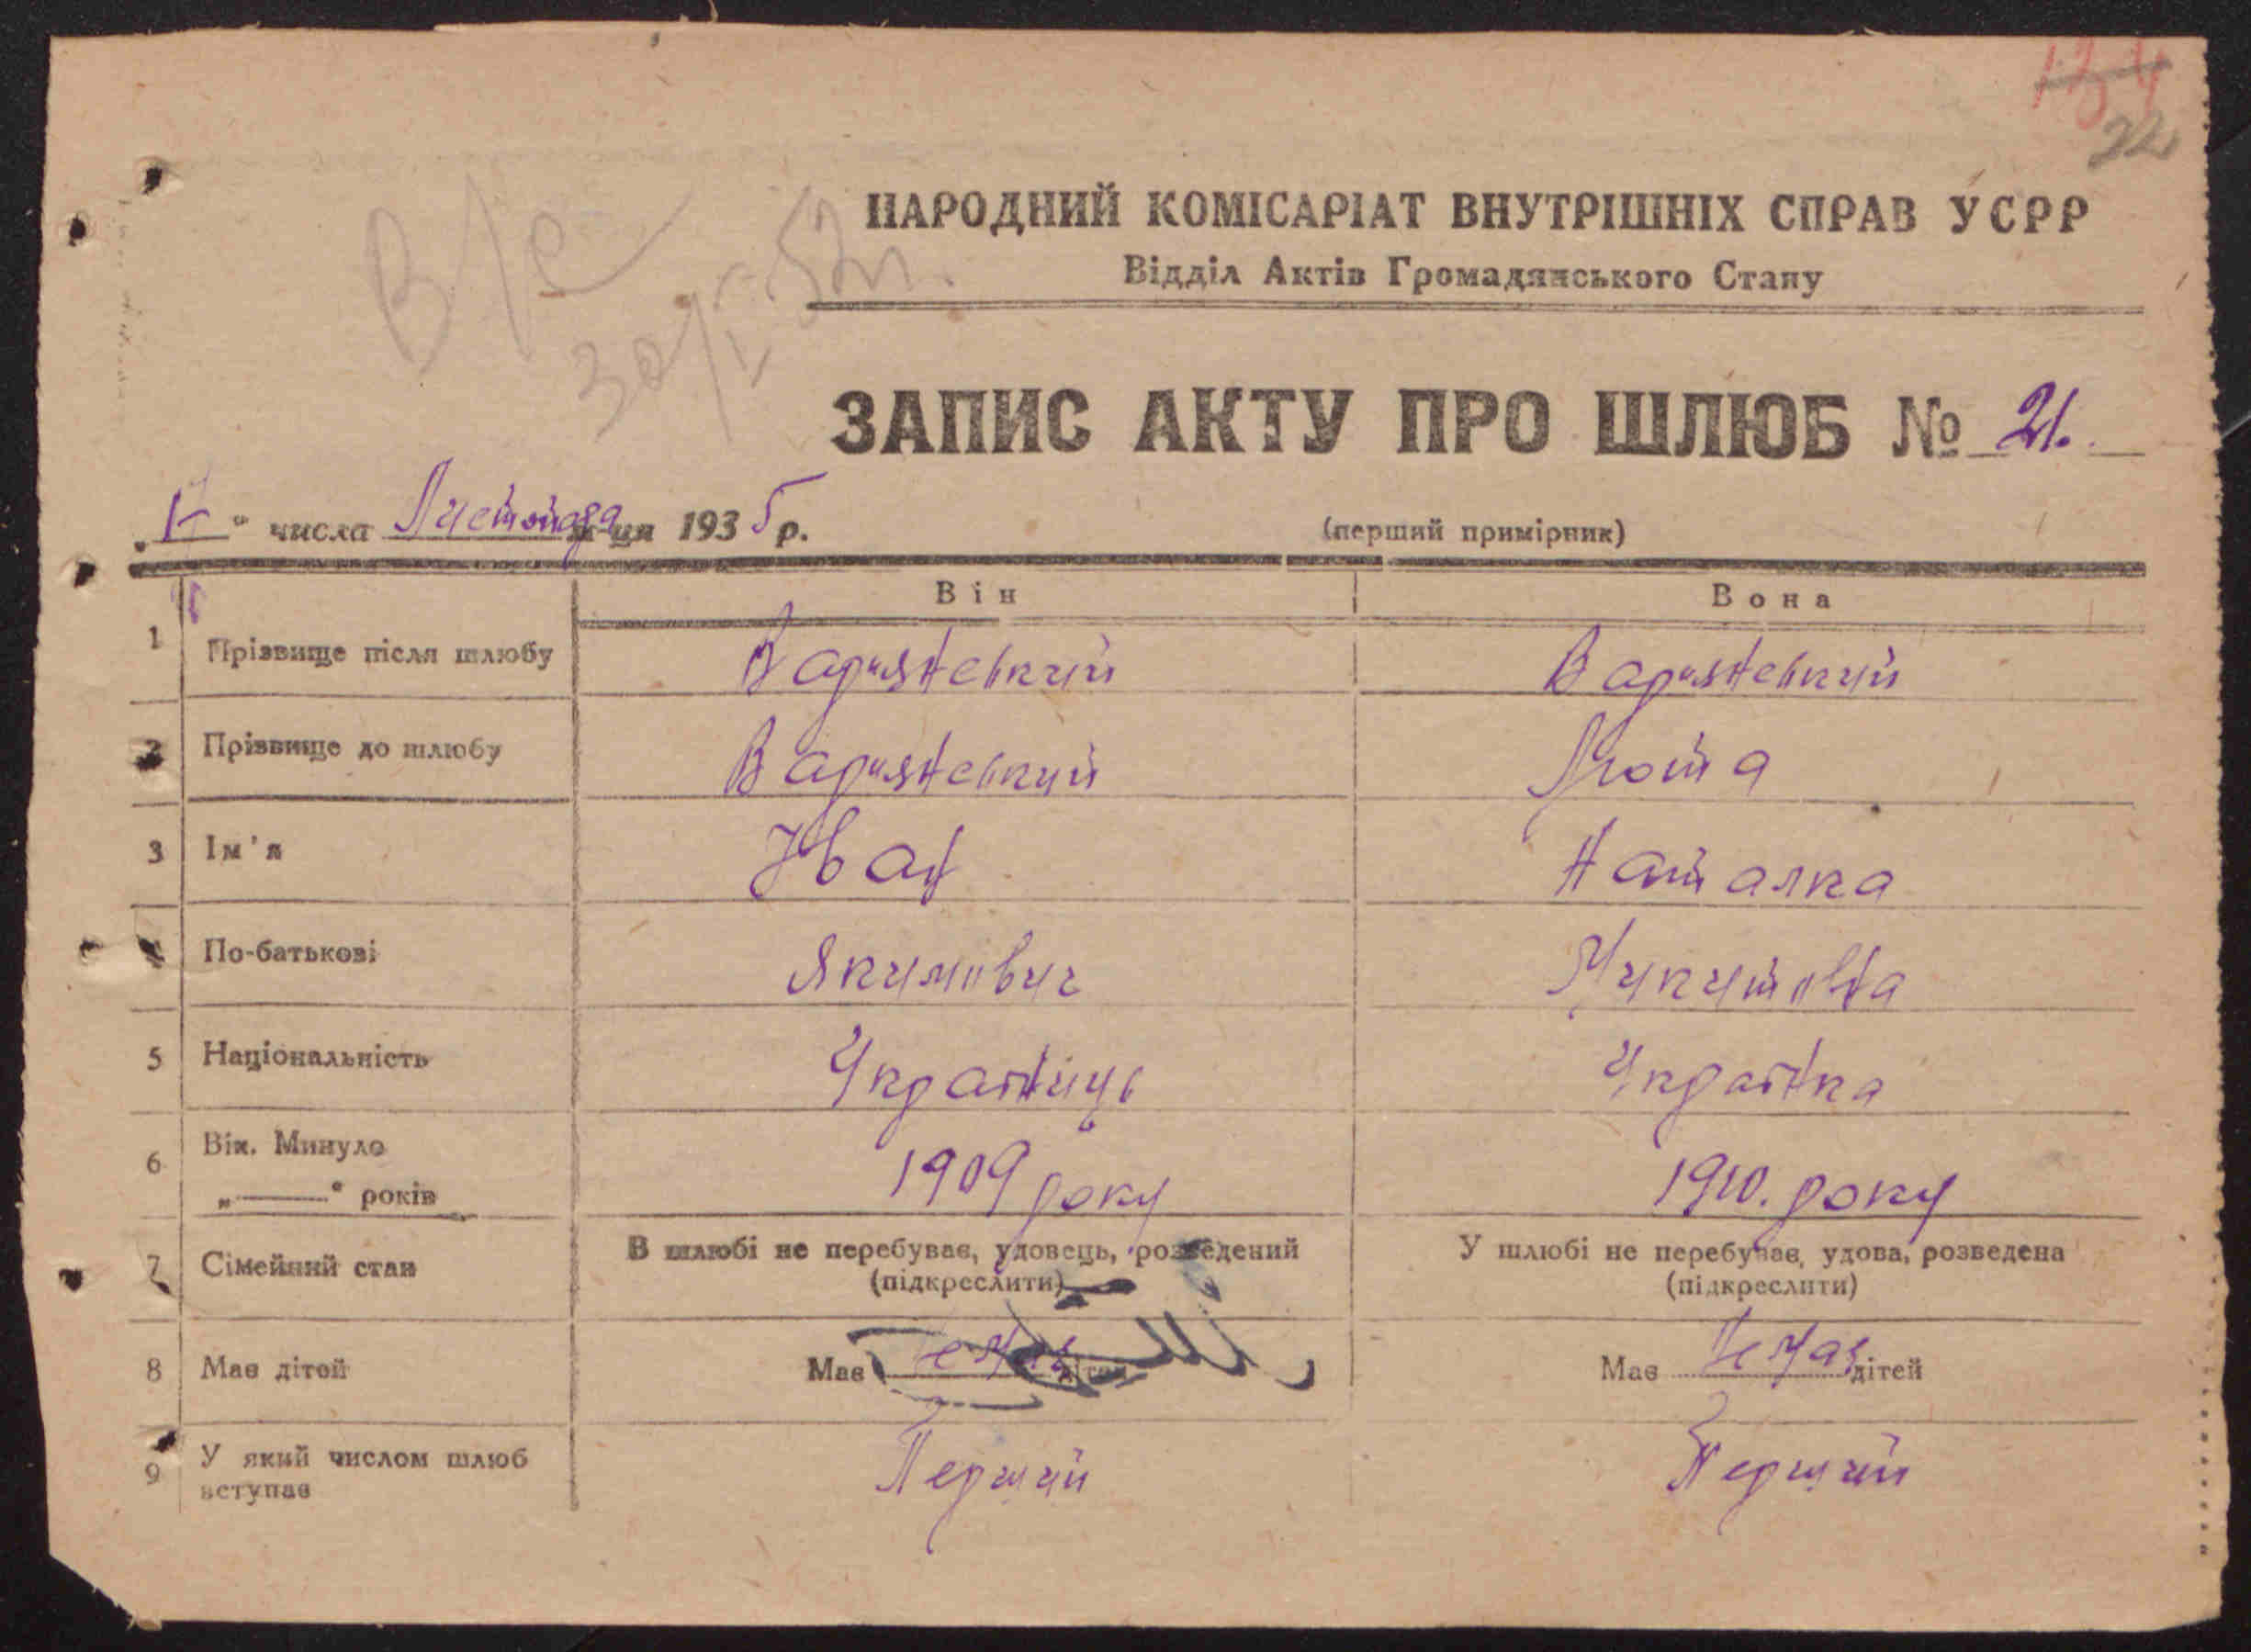 134
22
НАРОДНИЙ КОМІСАРІАТ ВНУТРІШНІХ СПРАВ УСРР
Відділ Актів Громадянського Стану
ЗАПИС АКТУ ПРО ШЛЮБ № 21.
" числа Листопада м-ця 1935 р.
(перший примірник)
Він Вона
1 Прізвище після шлюбу Вариянський Вариянський
2 Прізвище до шлюбу Вариянський Люта
3 Ім'я Іван Наталка
4 По-батькові Якимович Микитовна
5 Національність Украіниць Украінка
6 Вік. Минуло „——“ років 1909 року 1910. року
7 Сімейний стан В шлюбі не перебував, удовець, розведений (підкреслити) У шлюбі не перебував, удова, розведена (підкреслити)
8 Має дітей Має Немає дітей Має Немає дітей
9 У який числом шлюб вступає Перший Перший